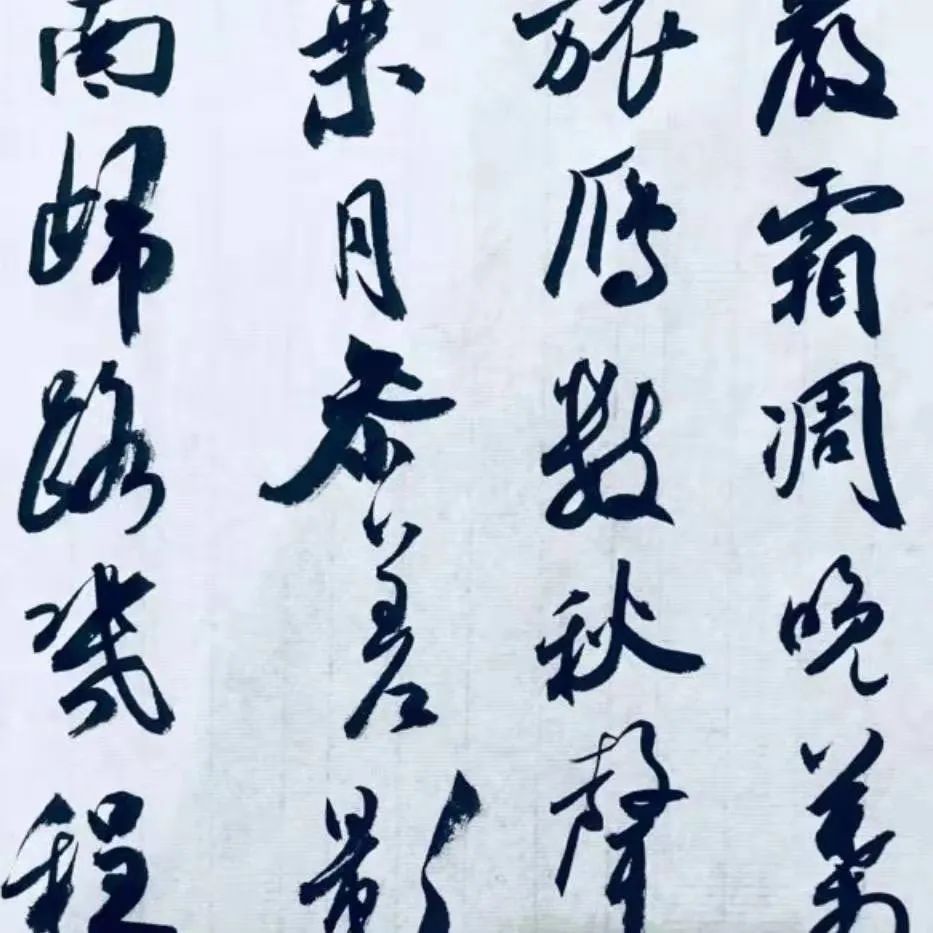 嚴霜凋晚葉
旅雁數秋聲
乘月參差影
南歸路幾程